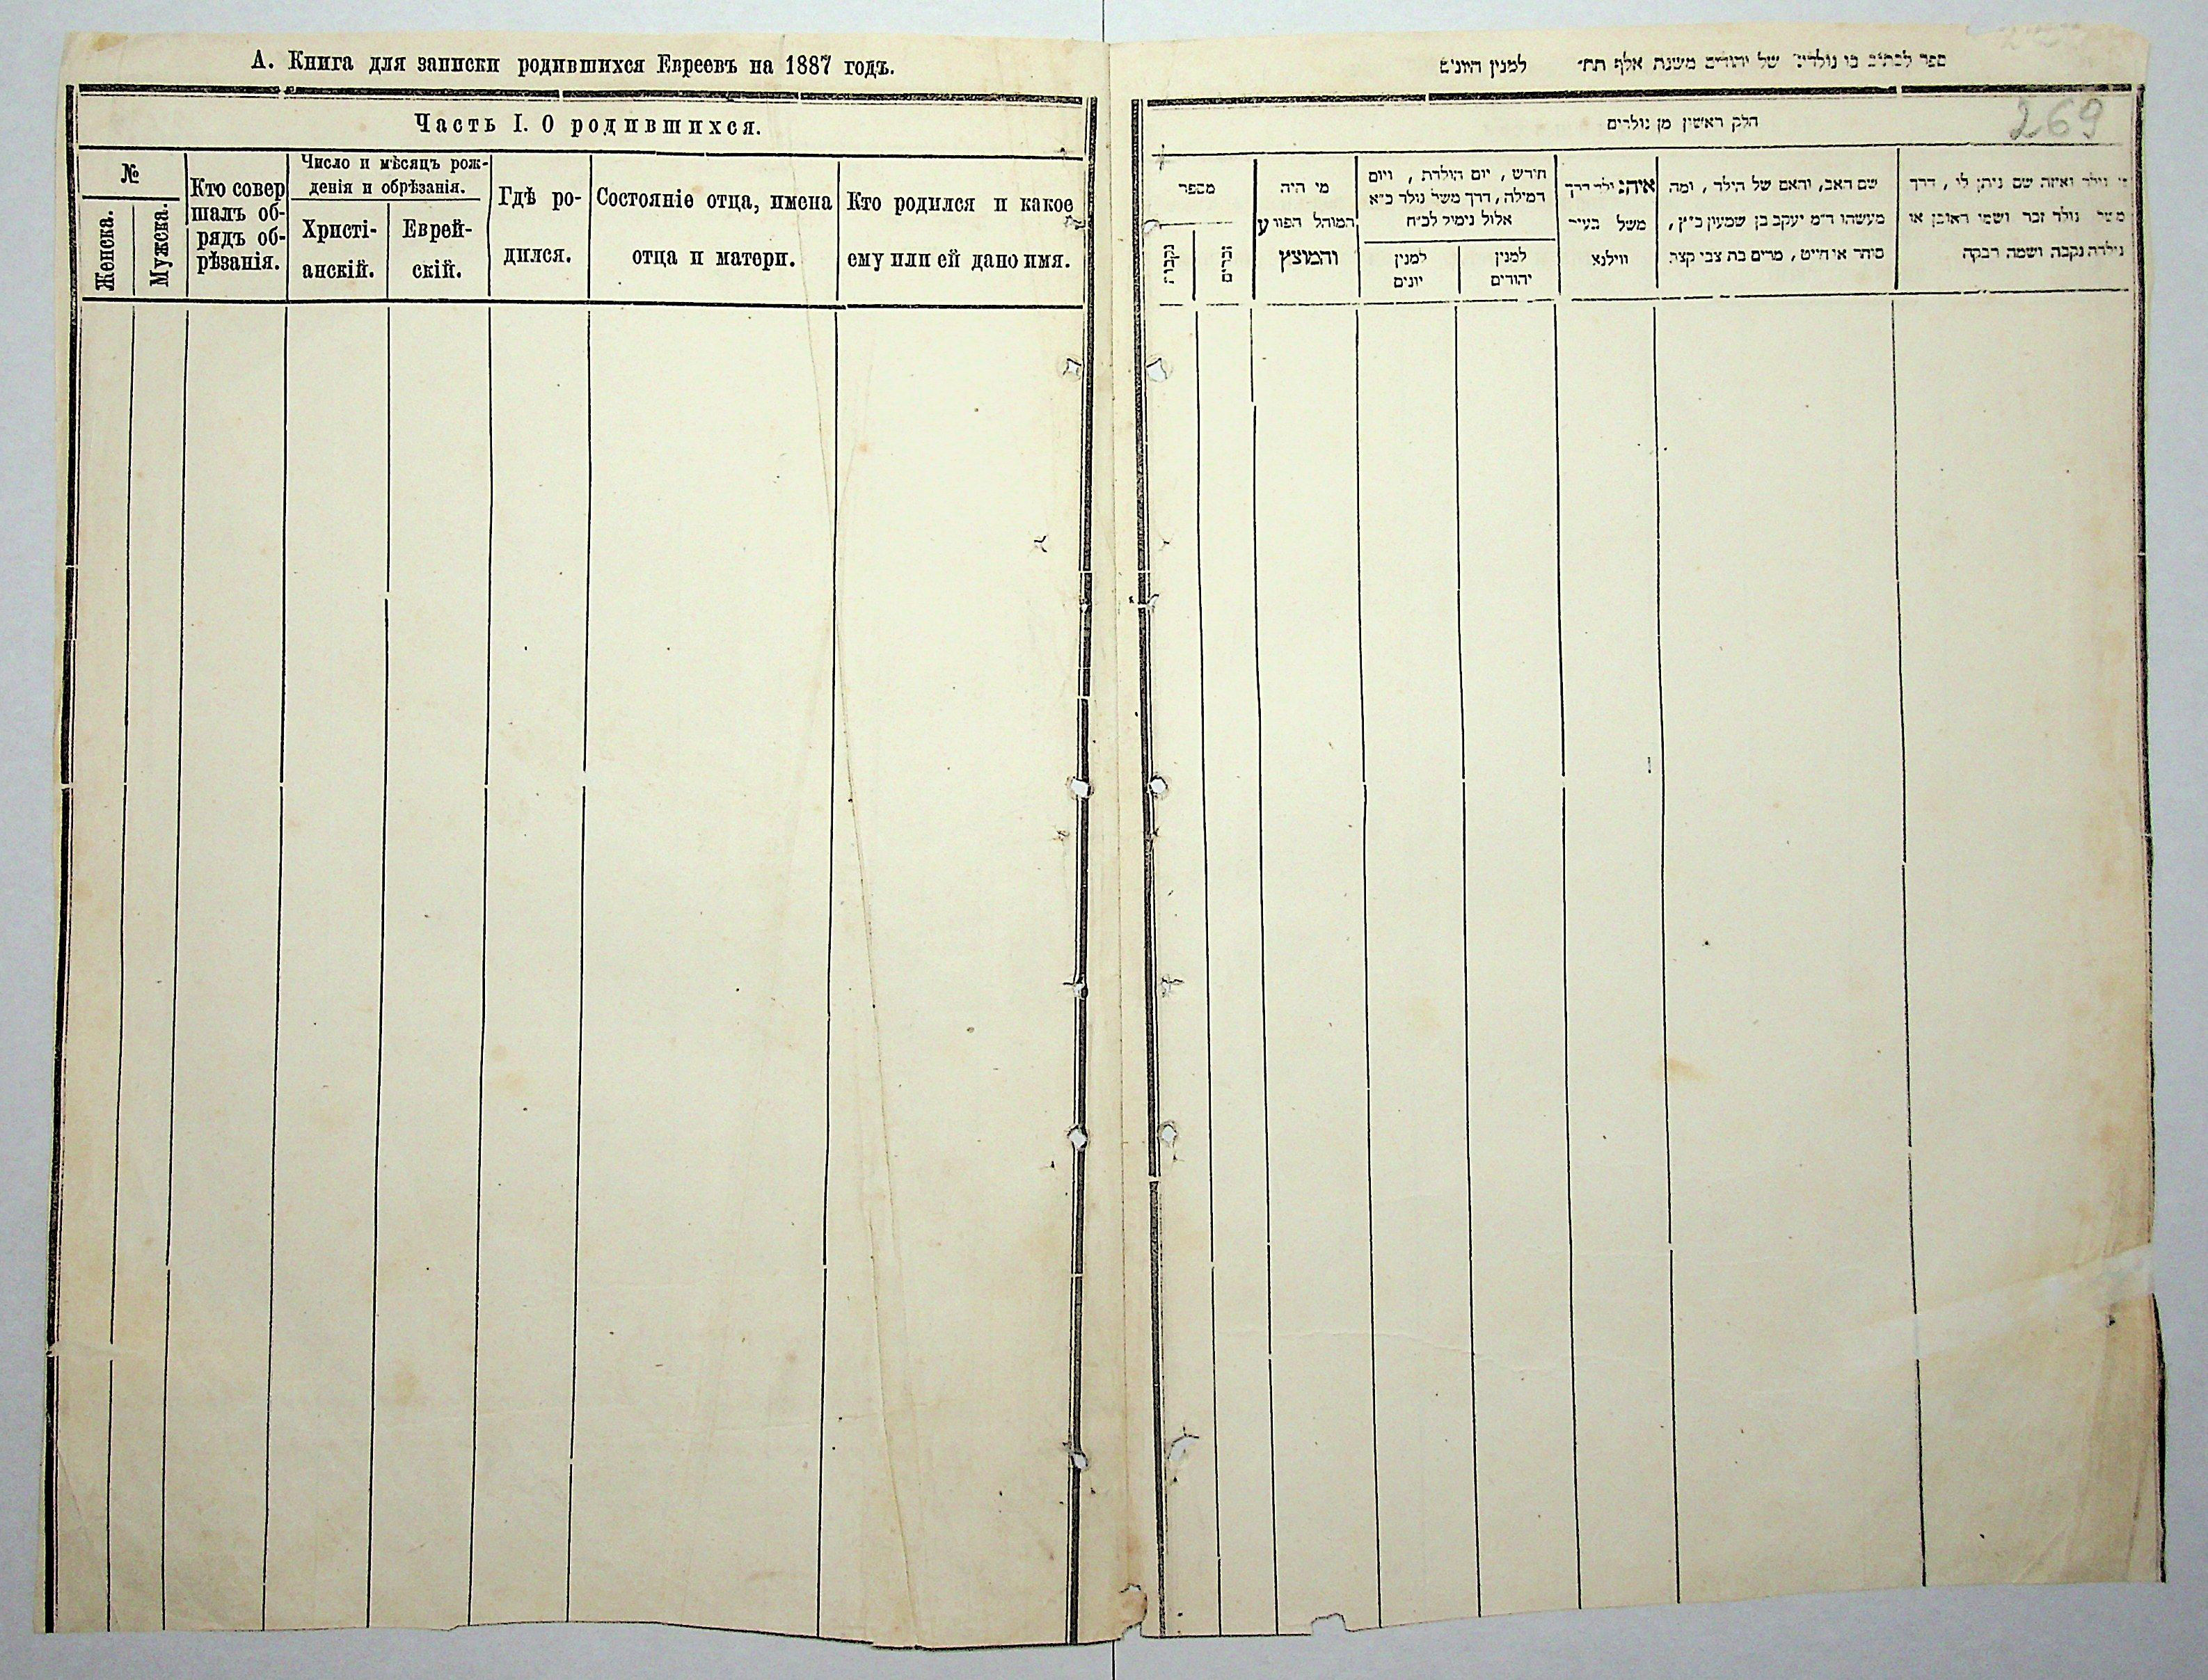 А. Книга для записки родившихся Евреевъ на 1887 годъ.
Часть I. О родившихся.
№
Женска.
Мужска.
Кто совер
шалъ об-
рядъ об-
рѣзанія.
Число и мѣсяцъ рож-
денія и обрѣзанія.
Христі-
анскій.
Еврей-
скій.
Гдѣ ро-
дился.
Состояніе отца, имена
отца и матери.
Кто родился и какое
ему или ей дано имя.
ספר לכתוב בו נולדים של יהודים משנת אלף תת״ למנין היונים
269
חלק ראשון מן נולדים
נולד ואיזה שם ניתן לו, דרך
משל נולד זכר ושמו ראובן או
נולדה נקבה ושמה רבקה
שם האב, והאם של הילד, ומה
מעשהו ד״מ יעקב בן שמעון כ״ץ,
סוחר או חייט, מרים בת צבי קצב
איה נולד דרך
משל בעיר
ווילנא
חודש, יום הולדת, ויום
המילה, דרך משל נולד כ״א
אלול נימול לכ״ח
למנין
יהודים
למנין
יונים
מי היה
המוהל הפורע
והמוצץ
מספר
זכרים
נקבות